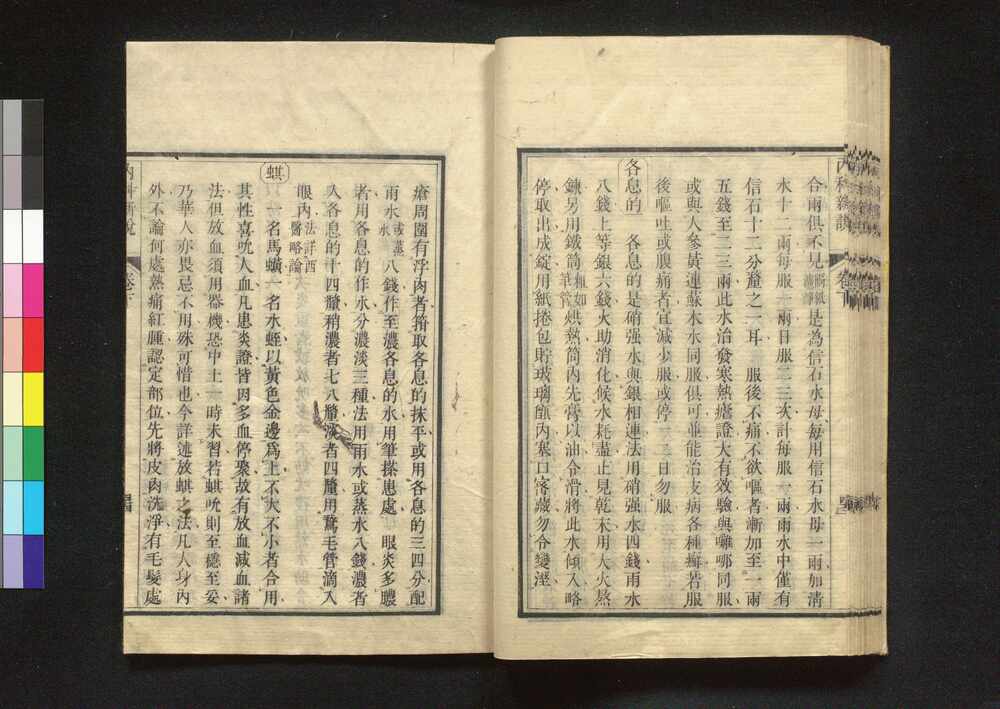 內科新說
卷下
合兩俱不見是為信石水母每用信石水母一兩加清
水十二兩每服一兩日服二三次計每服一兩雨水中僅有
信石十二分釐之一耳 服後不痛不欲嘔者漸加至一兩
五錢至二三兩此水治發寒熱瘧證大有效驗與囇哪同服
或與人參黃連蘇木水同服俱可並能治皮病各種癬若服
後嘔吐或腹痛者宜減少服或停一二日勿服
各息的 各息的是硝强水與銀相連法用硝强水四錢雨水
八錢上等銀六錢火助消化候水耗盡止見乾末用大火熬
鍊另用鐵筒粗如筆管烘熱筒內先膏以油令滑將此水傾入略
停取出成錠用紙捲包貯玻璃瓶內塞口密藏勿令變溼
瘡周圍有浮肉者揩取各息的抹平或用各息的三四分配
雨水或蒸水八錢作至濃各息的水用筆搽患處 眼炎多膿
者用各息的作水分濃淡三種法用雨水或蒸水八錢濃者
入各息的十四釐稍濃者七八釐淡者四釐用鵞毛管滴入
眼內法詳西醫略論
蜞 一名馬蟥一名水蛭以黃色金邊爲上不大不小者合用
其性喜吮人血凡患炎證皆因多血停聚故有放血減血諸
法但放血須用器機恐中土一時未習若蜞吮則至穩至妥
乃華人亦畏忌不用殊可惜也今詳述放蜞之法凡人身內
外不論何處熱痛紅腫認定部位先將皮肉洗淨有毛髮處
內科新說
卷下